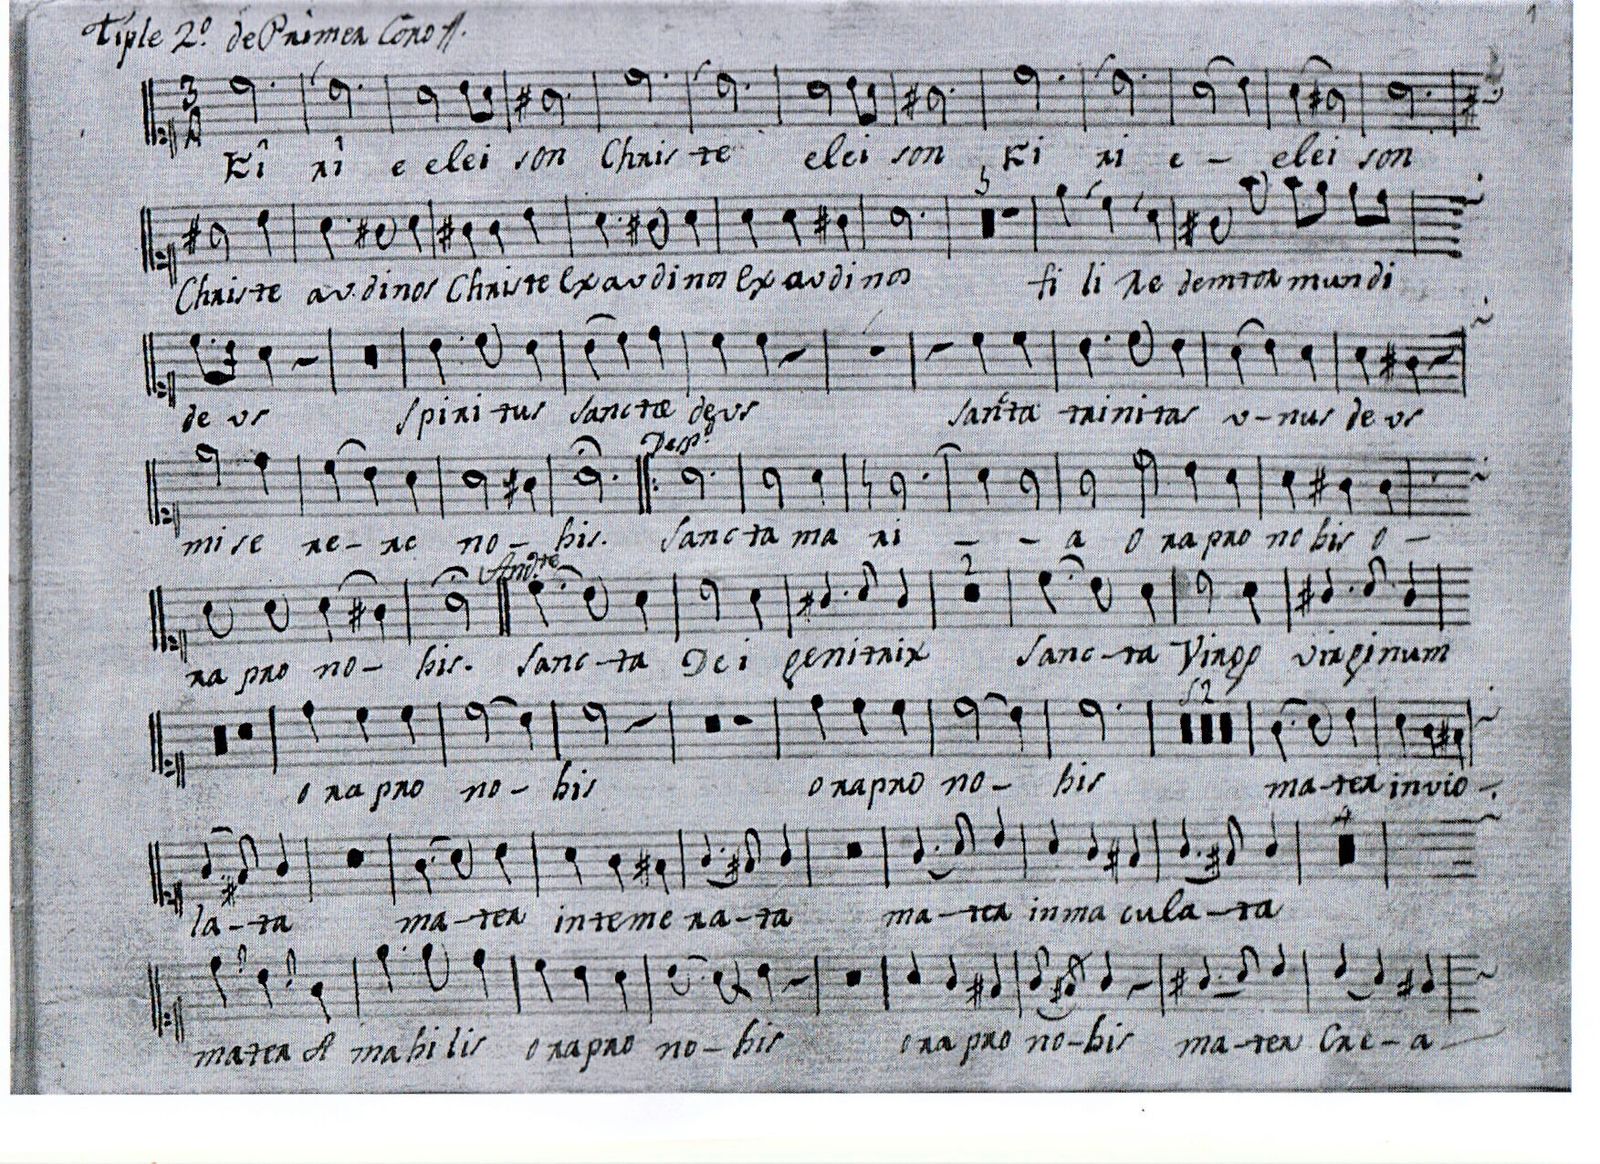 Tiple 2º de Primer Coro //. 1
3
2
Ki ri e elei son Chris te elei son Ki ri e – elei son
5
Christe audinos Christe Exaudinos Exaudinos fi li Redemtor mundi
de us spiritus sanctæ deus sancta trinitas u–nus deus
Desp.º
mise re–re no–bis. Sancta ma ri – – a o ra pro nobis o –
And.te 2
ra pro no– bis. Sanc–ta Dei genitrix Sanc–ta Virgo virginum
12
o ra pro no– bis o rapro no– bis ma–ter invio–
4
la–ta ma–ter inteme ra–ta ma–ter inmacula–ta
mater A mabilis orapro no–bis ora pro no–bis ma–ter Cre–a